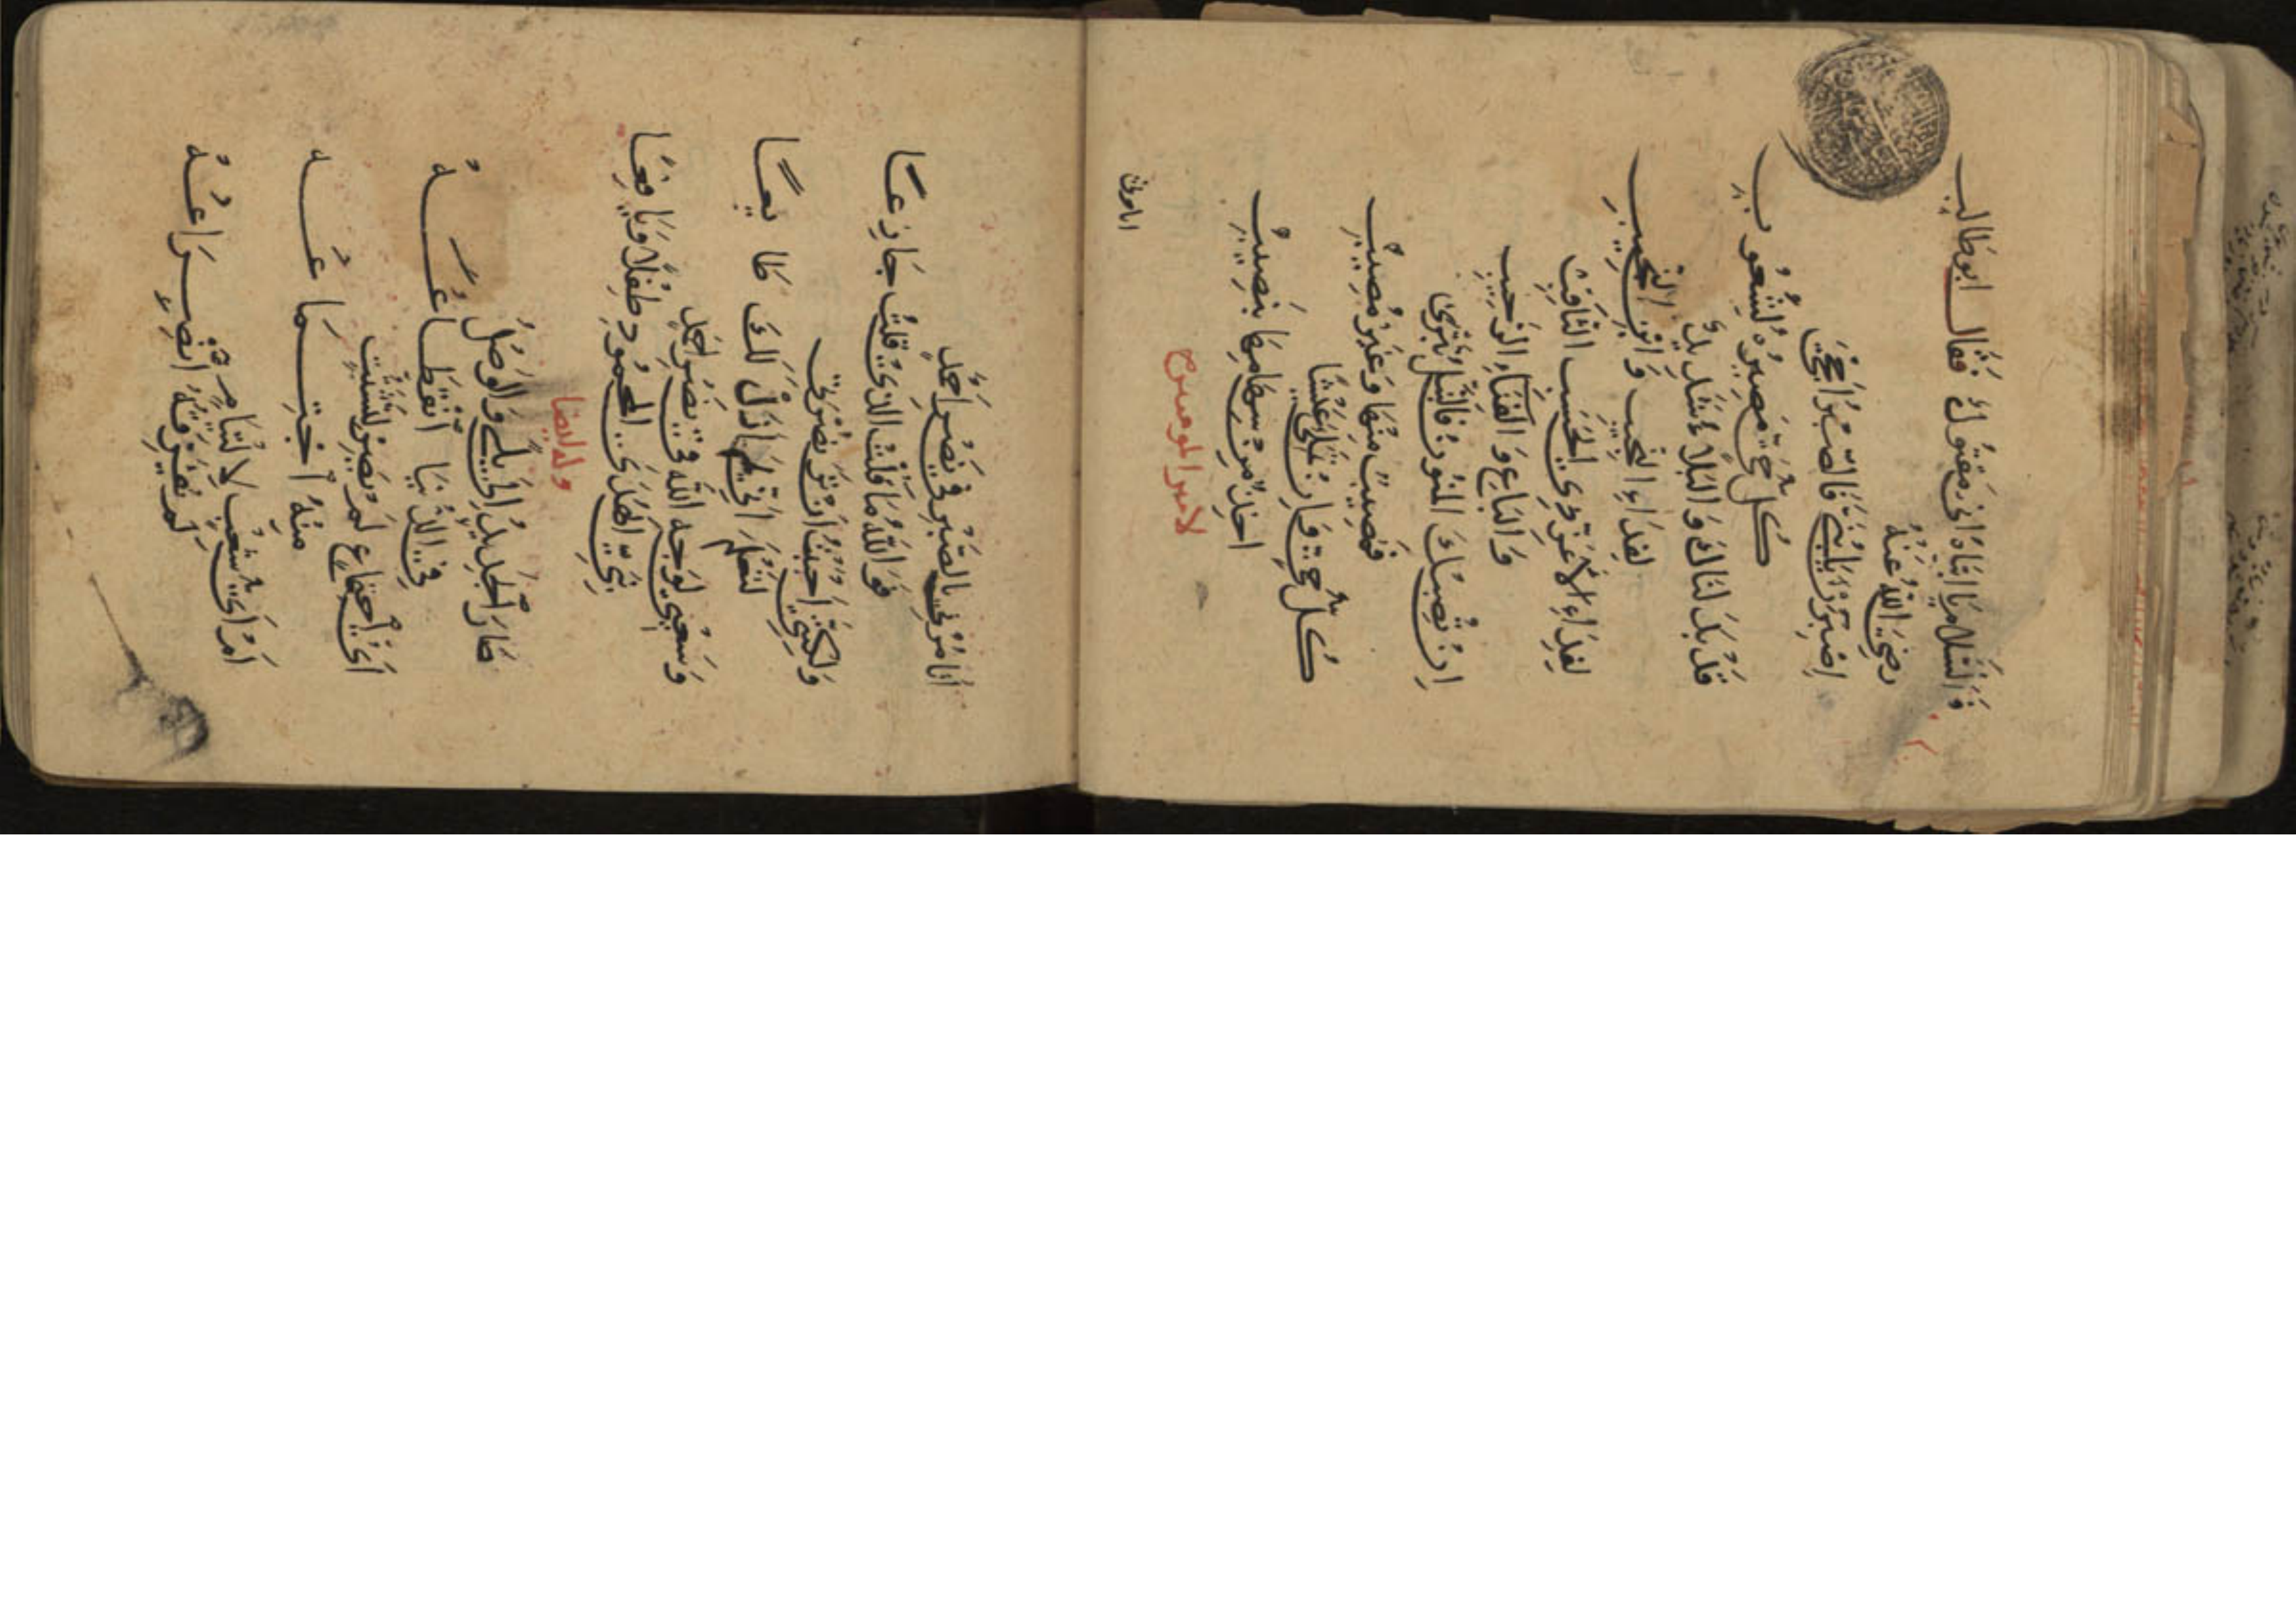 وَالسَّلَامُ يَا ابَتَاهُ انى مَقتُولٌ فَقَالَ ابو طَالِبٍ
رضِيَ اللهُ عَنْهُ
اِصْبِرَنْ يَا بُنَيَّ فَالصَّبْرُ احْجَى
كُلُّ حَيٍّ مَصِيرُهُ لِشَعُوبِ
قَدْ بَذَلنَاكَ وَالبَلَاءُ شَدِيدٌ
لِفِدَاءِ النَّجِيبِ وَابْنِ النَّجِيبِ
لِفِدَاءِ الاَغَرِّ ذِي الحَسَبِ الثَّاقِبِ
وَالبَاعِ وَالفِنَاءِ الرَّحِيبِ
اِنْ تُصِبْكَ المَنُونُ فَالنَّبْلُ تُبْرَى
فَمُصِيبٌ مِنْهَا وَغَيْرُ مُصِيبِ
كُلُّ حَيٍّ وَاِنْ تَمَلَّى عَيْشًا
اخِذٌ مِنْ سِهَامِهَا بِنَصِيبِ
لامير المومنين
اتامرنى
اَتَامُرُنِي بِالصَّبْرِ فِي نَصْرِ احْمَدٍ
فَوَاللهِ مَا قُلْتُ الذِي قُلْتُ جَازِعَا
وَلَكِنَّنِي احْبَبْتُ اَنْ تَرَ نُصْرَتِي
لِتَعْلَمَ اَنِّي لَمْ اَزَلْ لَكَ طَايِعَا
وَسَعْيِي لِوَجْهِ اللهِ فِي نَصْرِ احْمَدٍ
نَبِيِّ الهُدَى المَحْمُودِ طِفْلًا وَيَافِعَا
وله ايضا
صَارَ الجَدِيدُ اِلَى بِلًى وَالوَصْلُ
فِي الدُّنْيَا انْقِطَاعُهُ
اَيُّ اجْتِمَاعٍ لَمْ يَصِرْ لِتَشَتُّتٍ
مِنْهُ اجْتِمَاعُهُ
اَمْ اَيُّ شَعْبٍ لِالْتِيَامٍ
لَمْ يُفَرِّقْهُ انْصِدَاعُهُ